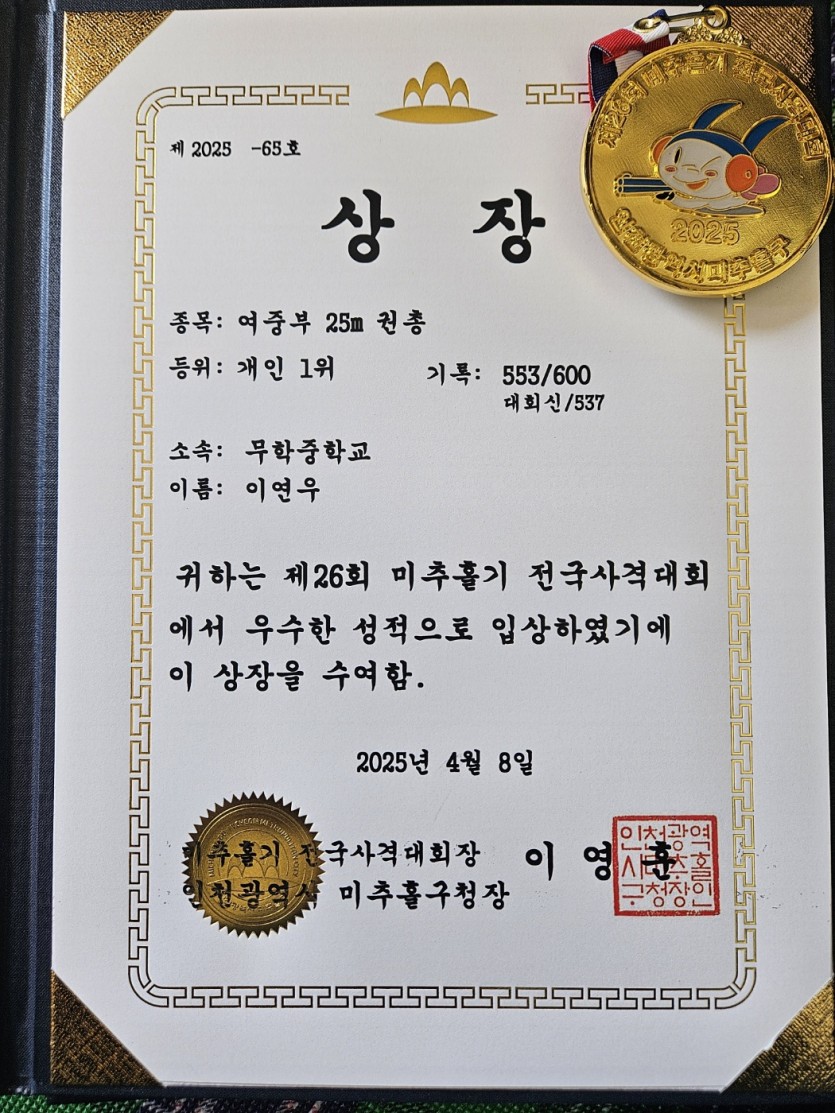 제 2025 -65호
상 장
종목: 여중부 25m 권총
등위: 개인 1위 기록: 553/600
대회신/537
소속: 무학중학교
이름: 이연우
귀하는 제26회 미추홀기 전국사격대회
에서 우수한 성적으로 입상하였기에
이 상장을 수여함.
2025년 4월 8일
미추홀기 전국사격대회장
인천광역시 미추홀구청장
이 영 훈
인천광역
시미추홀
구청장인
제26회 미추홀기 전국사격대회
2025
인천광역시미추홀구